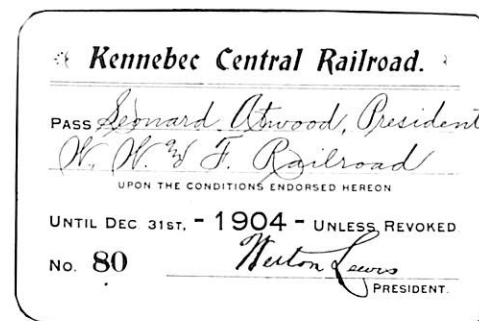 Kennebec Central Railroad.
PASS Leonard Atwood, President
W. W. & F. Railroad
UPON THE CONDITIONS ENDORSED HEREON
UNTIL DEC 31ST, - 1904 - UNLESS REVOKED
No. 80 Weston Lewis
PRESIDENT.